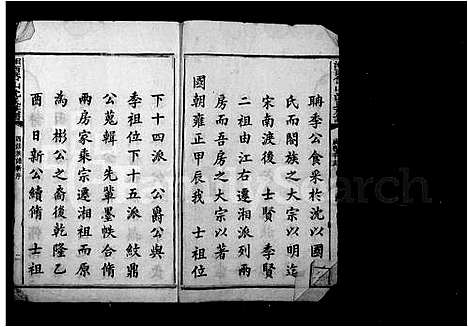 聃季公食采於沈以國
氏而閤族之大宗以明迄
宋南渡後 士賢 季賢
二祖由江右遷湘派列兩
房而吾房之大宗以著
國朝雍正甲辰我 士祖位
下十四派 公爵公與
季祖位下十五派 紋鼎
公蒐輯 先輩墨帙合脩
兩房家乘宗遷湘祖而原
為 彬公之裔後乾隆乙
酉 日新公續脩 士祖